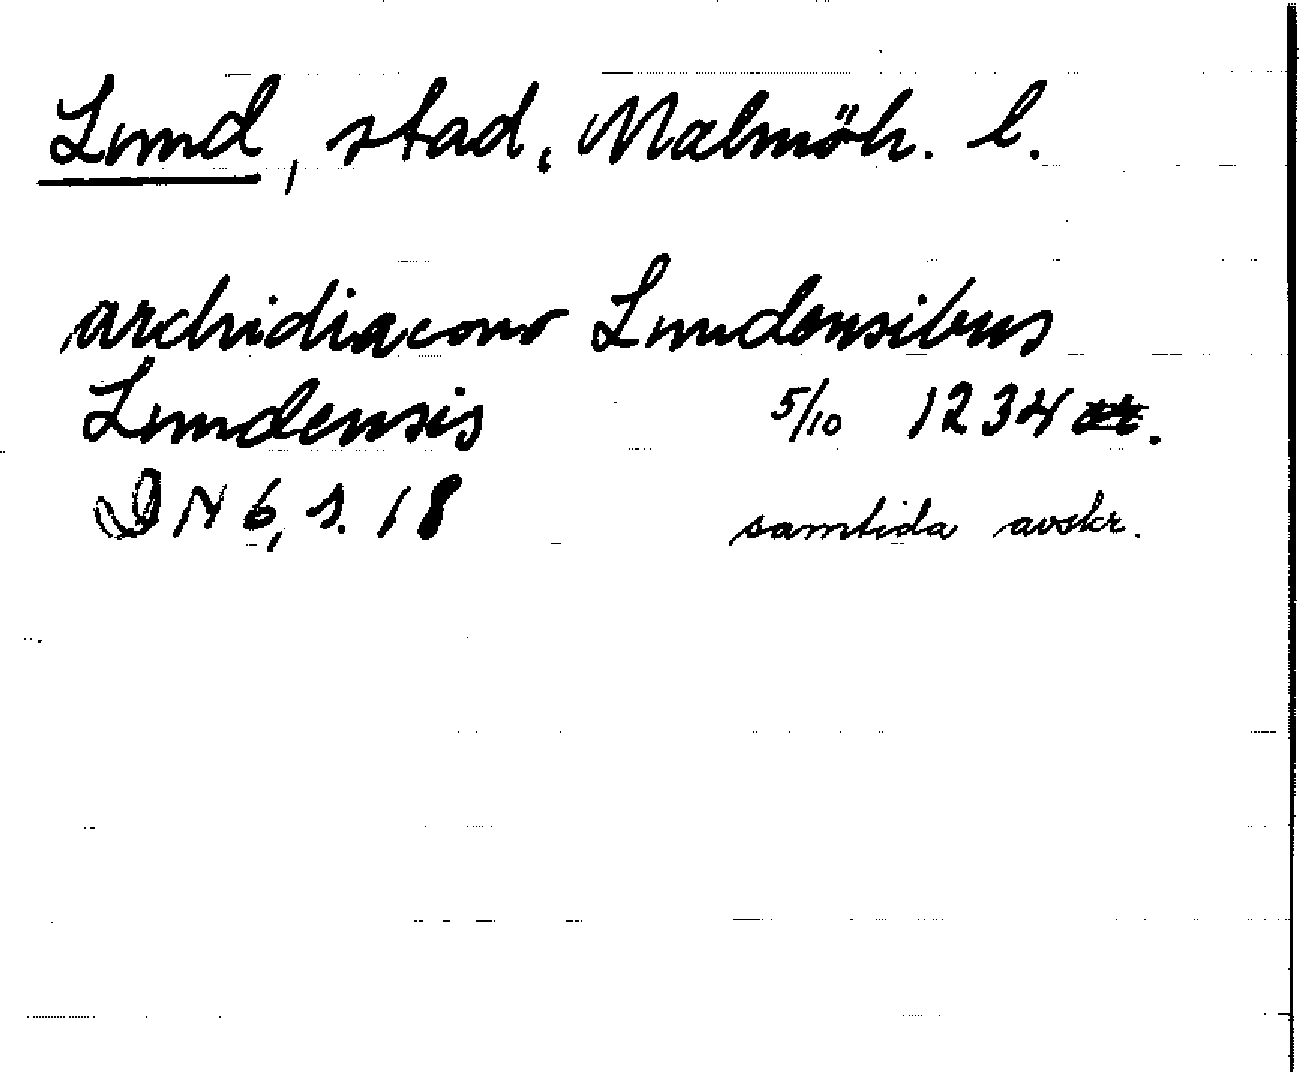 Lund, stad, Malmöh. l.
archidiacono Lundensibus
Lundensis 5/10 1234.
DN 6, s. 18 samtida avskr.